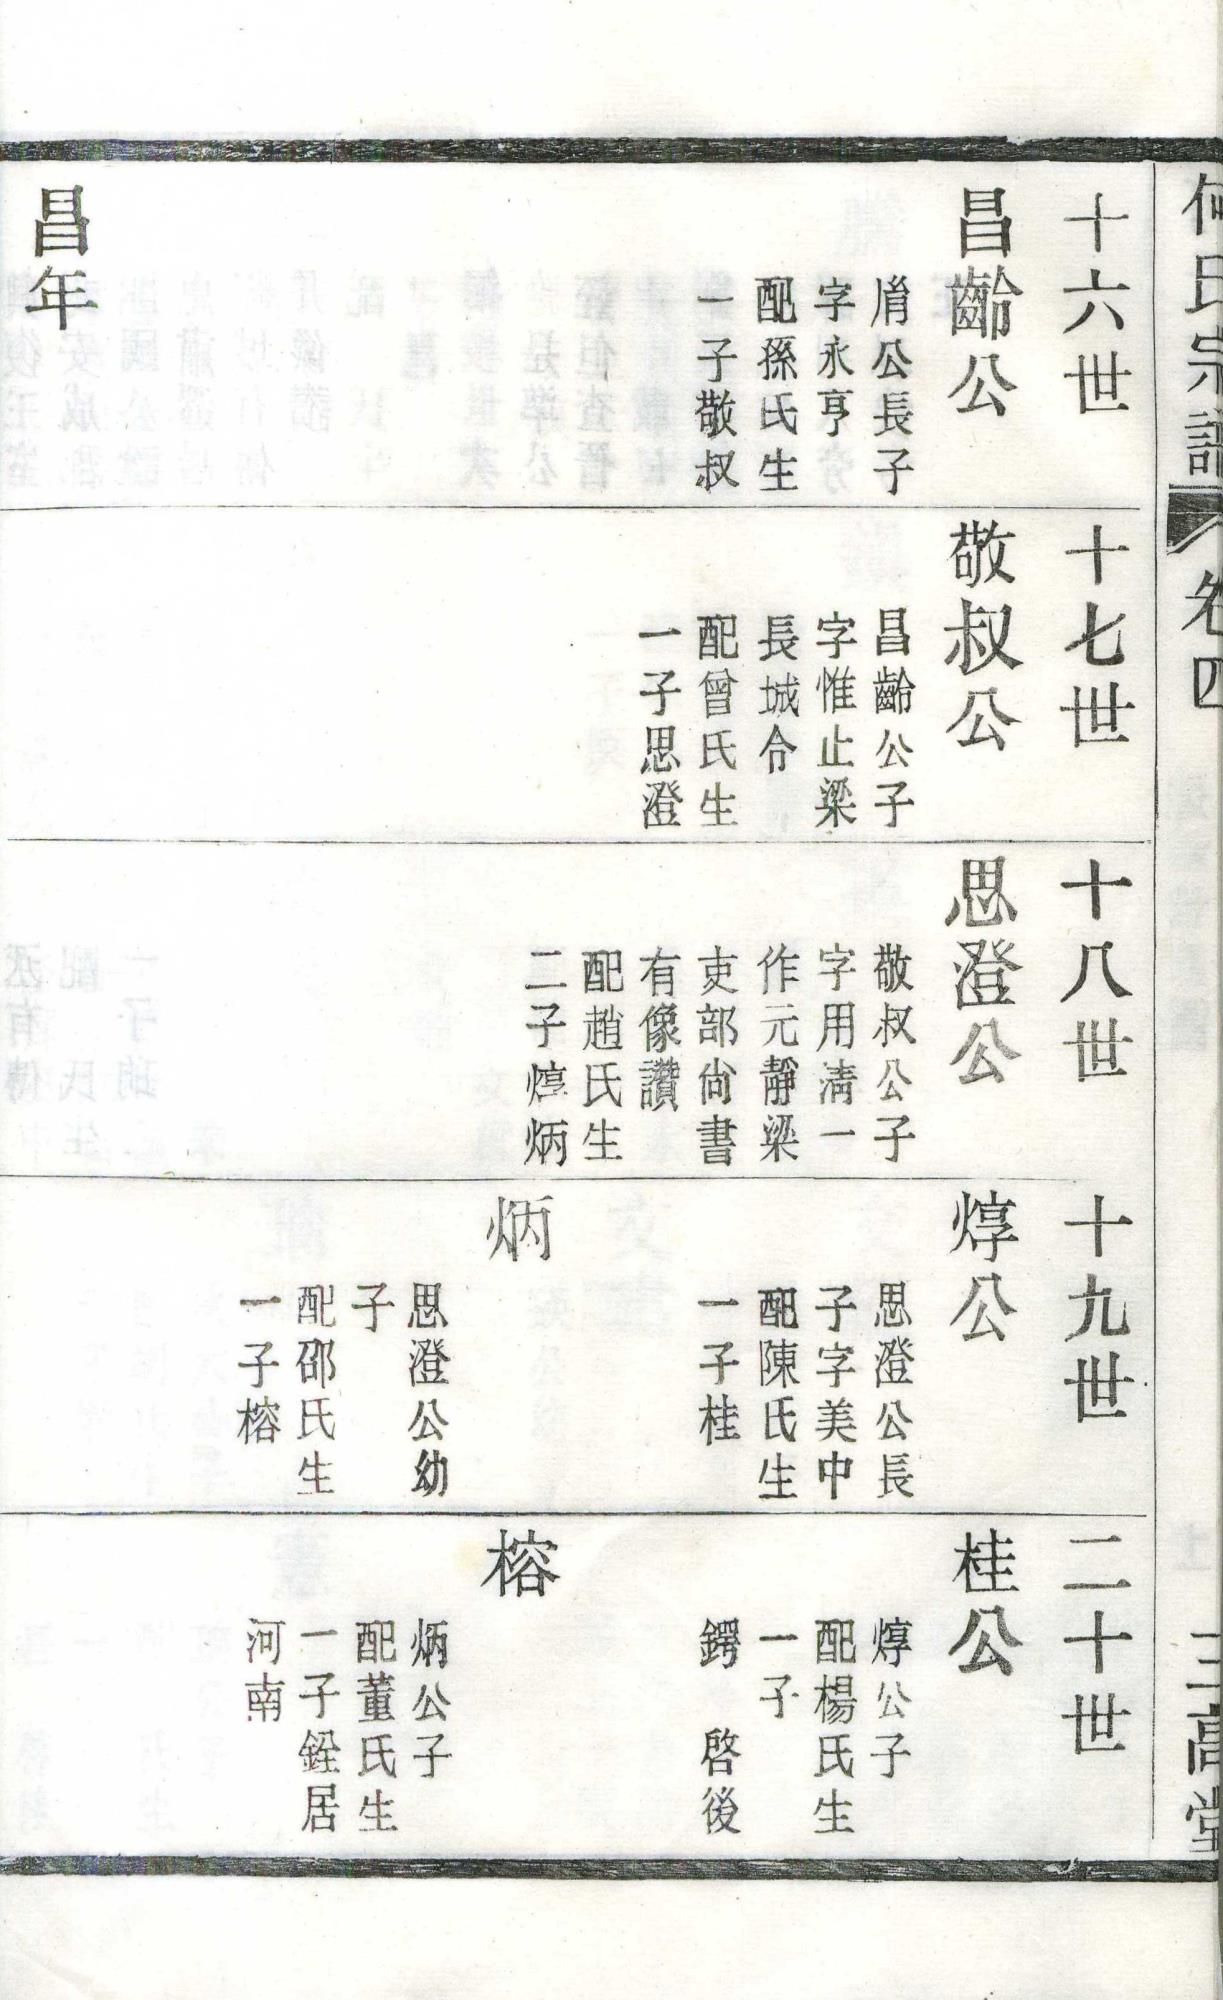 何氏宗譜 卷四 三高堂
十六世
昌齡公
脩公長子
字永亨
配孫氏生
一子敬叔
昌年
十七世
敬叔公
昌齡公子
字惟止梁
長城令
配曾氏生
一子思澄
十八世
思澄公
敬叔公子
字用清一
作元靜梁
吏部尙書
有像讚
配趙氏生
二子焞炳
十九世
焞公
思澄公長
子字美中
配陳氏生
一子桂
炳
思澄公幼
子
配邵氏生
一子榕
二十世
桂公
焞公子
配楊氏生
一子
鍔 啓後
榕
炳公子
配董氏生
一子銓居
河南